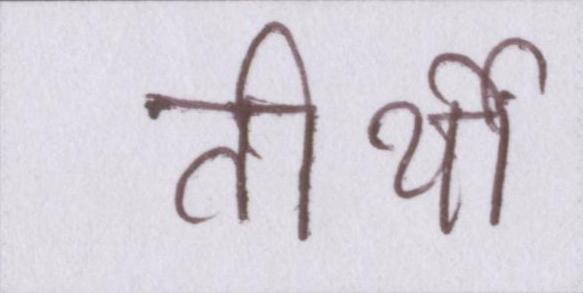 तीर्थी